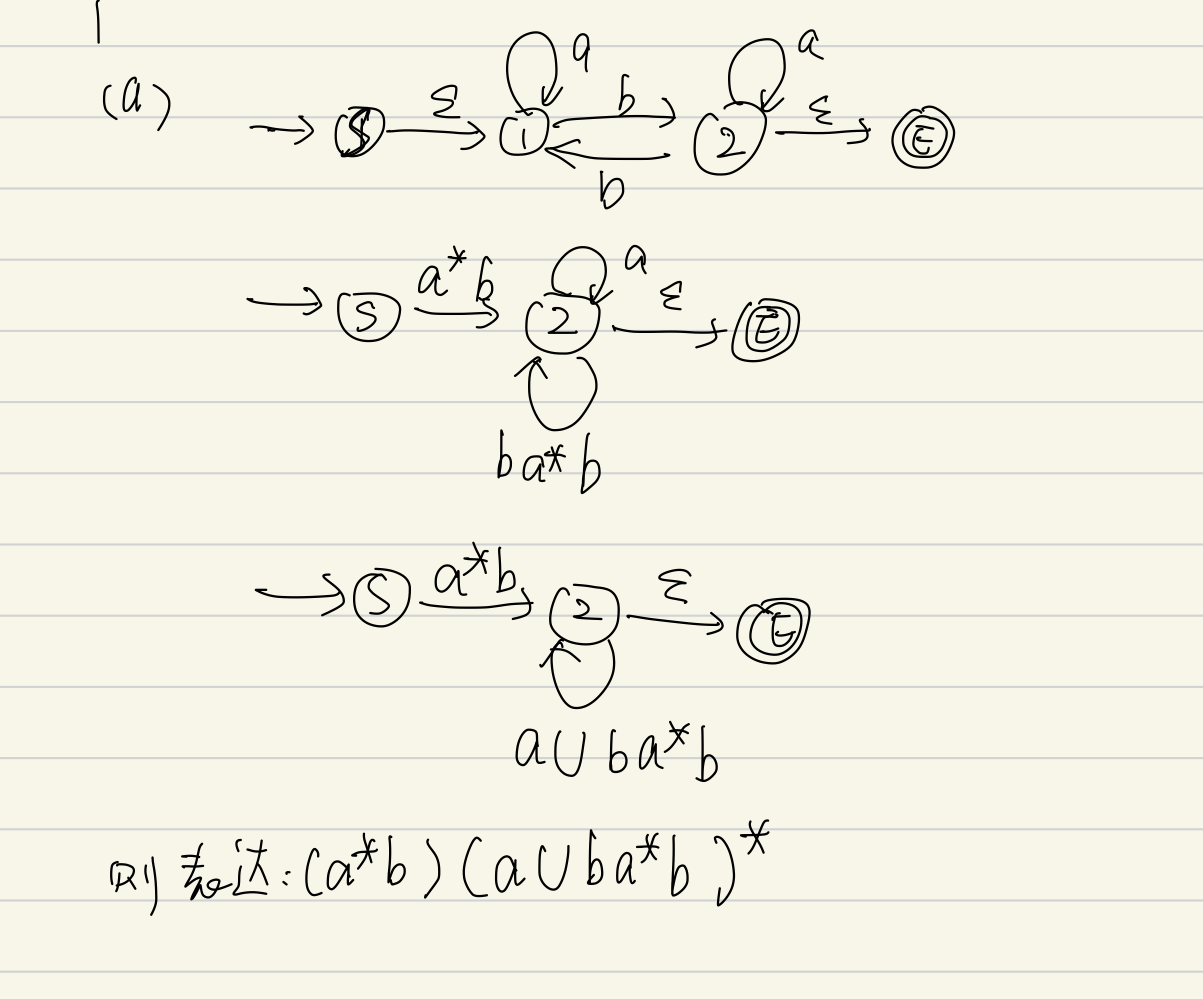 1
(a) → S ε 1 a b b 2 a ε E
→ S a*b 2 a ε E
ba*b
→ S a*b 2 ε E
a∪ba*b
则表达:(a*b)(a∪ba*b)*